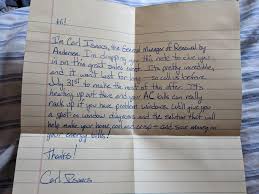 Hi!
I'm Carl Isaacs, the General Manager of Renewal by
Andersen. I'm dropping you this note to clue you
in on this great sales event. It's pretty incredible,
and it won't last for long – so call us before
July 31st to make the most of the offer. It's
heating up out there and your AC bills can really
rack up if you have problem windows. We'll give you
a spot-on window diagnosis and the solution that will
help make your home cool and – save money on
your energy bills!
Thanks!
Carl Isaacs